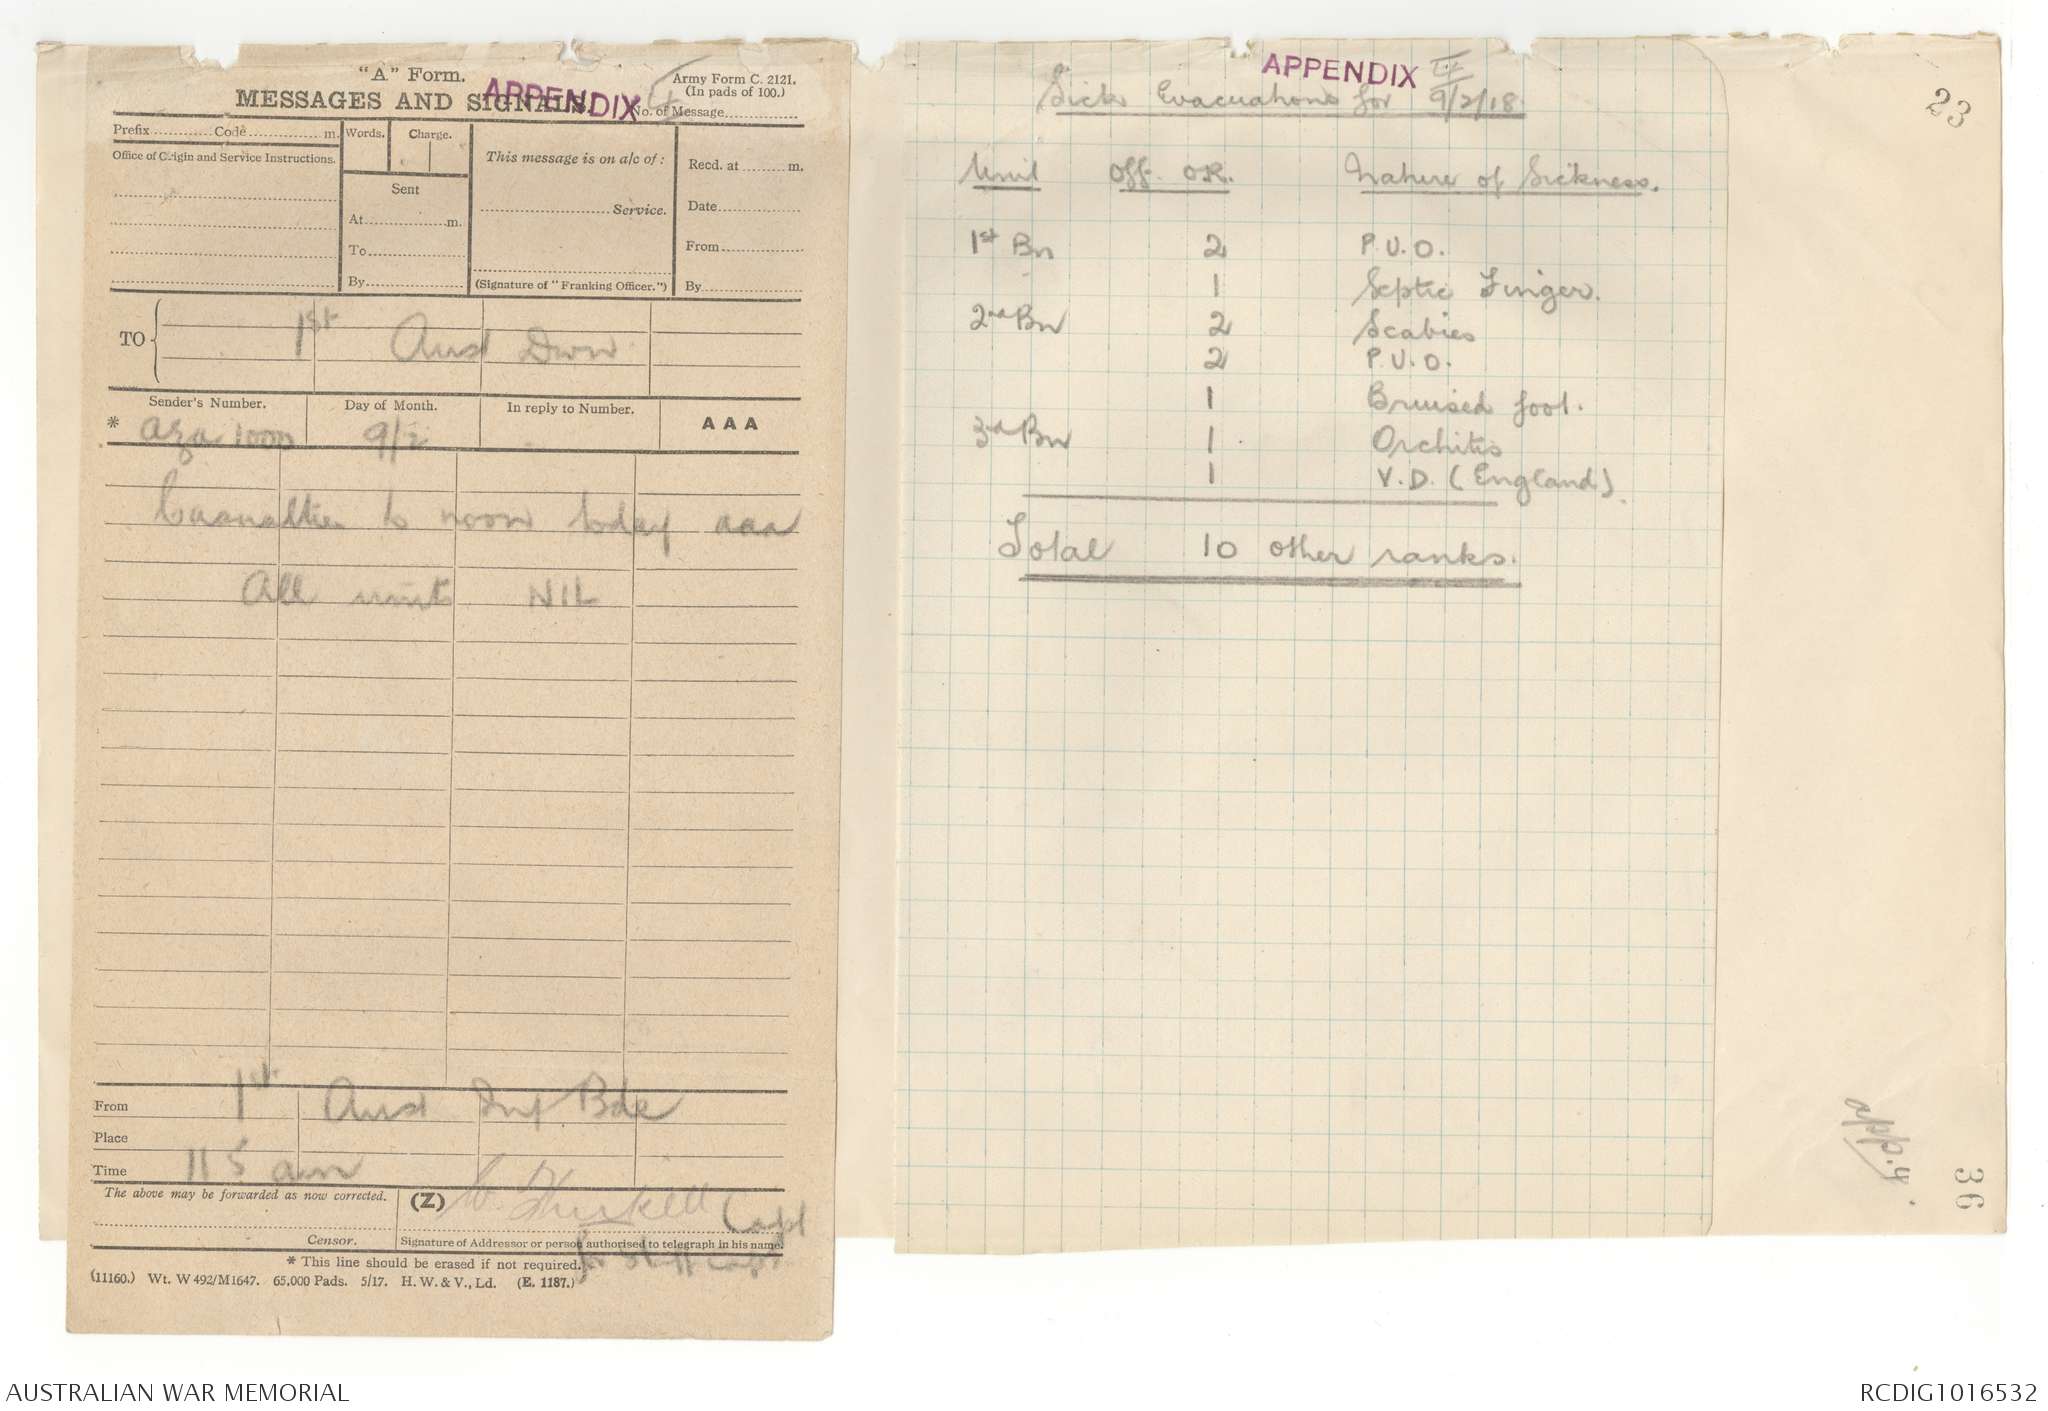 "A" Form.
Army Form C. 2121.
MESSAGES AND SIGNALS.
(In pads of 100.)
APPENDIX 4
No. of Message
Prefix Code m.
Words.
Charge.
This message is on a/c of :
Recd. at m.
Office of Origin and Service Instructions.
Sent
Service.
Date
At m.
To
From
By
(Signature of "Franking Officer.")
By
TO
1st Aust Divn
Sender's Number.
Day of Month.
In reply to Number.
AAA
* 1000 9/2
Casualties to noon today aaa
All units NIL
From 1st Aust Inf Bde
Place
Time 11 5 am
The above may be forwarded as now corrected.
(Z)
Capt
Censor.
Signature of Addressor or person authorised to telegraph in his name.
for Staff Capt
* This line should be erased if not required.
(11160.) Wt. W 492/M1647. 65,000 Pads. 5/17. H. W. & V., Ld. (E. 1187.)
APPENDIX
Sick Evacuations for 9/2/18.
Unit Off. OR. Nature of Sickness.
1st Bn 2 P.U.O.
1 Septic Finger.
2nd Bn 2 Scabies
2 P.U.O.
1 Bruised foot.
3rd Bn 1 Orchitis
1 V.D. (England).
Total 10 other ranks.
23
app. 4.
36
AUSTRALIAN WAR MEMORIAL
RCDIG1016532